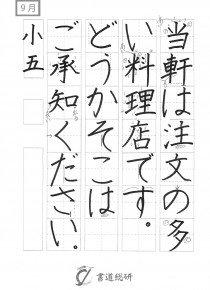 9月
当軒は注文の多
い料理店です。
どうかそこは
ご承知ください。
小五
書道総研